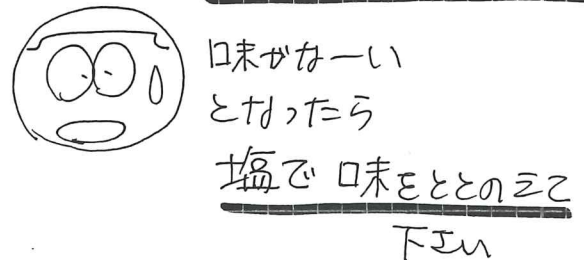 味がなーい
となったら
塩で 味をととのえて
下さい